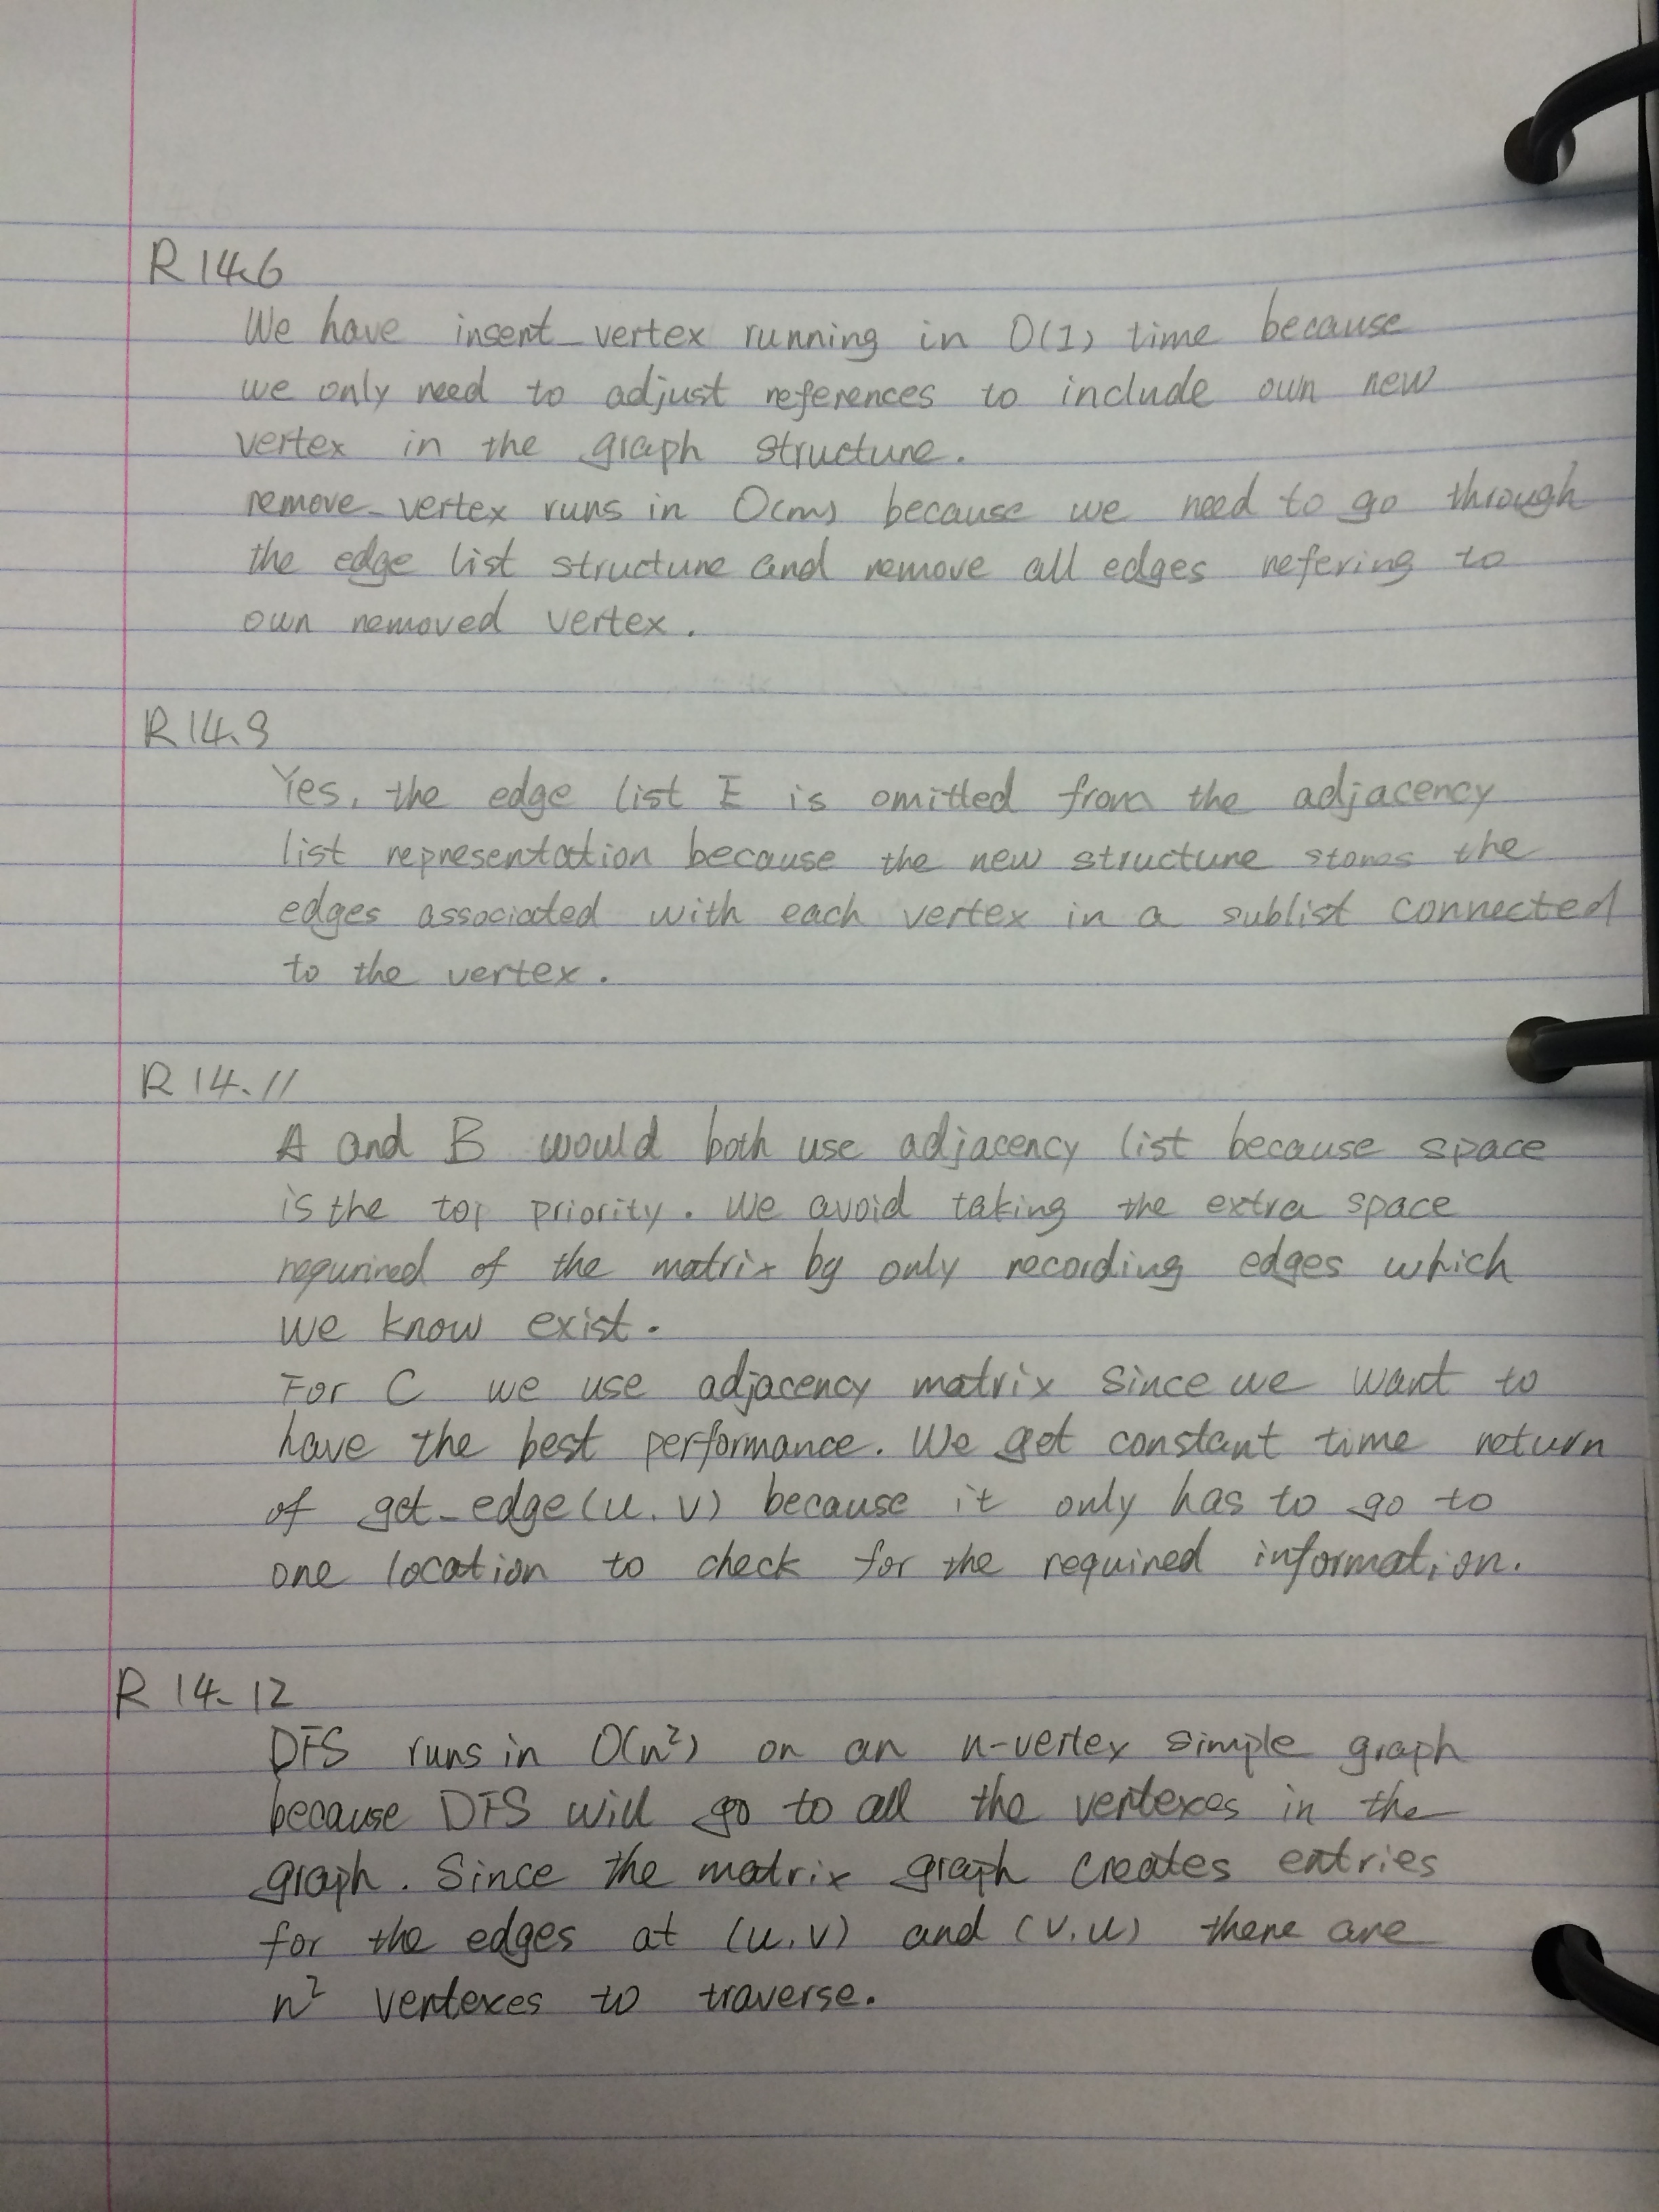 R 14.6
We have insert_vertex running in O(1) time because
we only need to adjust references to include own new
vertex in the graph structure.
remove_vertex runs in O(m) because we need to go through
the edge list structure and remove all edges refering to
own removed vertex.
R 14.9
Yes, the edge list E is omitted from the adjacency
list representation because the new structure stores the
edges associated with each vertex in a sublist connected
to the vertex.
R 14.11
A and B would both use adjacency list because space
is the top priority. We avoid taking the extra space
requrired of the matrix by only recording edges which
we know exist.
For C we use adjacency matrix since we want to
have the best performance. We get constant time return
of get_edge(u,v) because it only has to go to
one location to check for the required information.
R 14.12
DFS runs in O(n²) on an n-vertex simple graph
because DFS will go to all the vertexes in the
graph. Since the matrix graph creates entries
for the edges at (u,v) and (v,u) there are
n² vertexes to traverse.